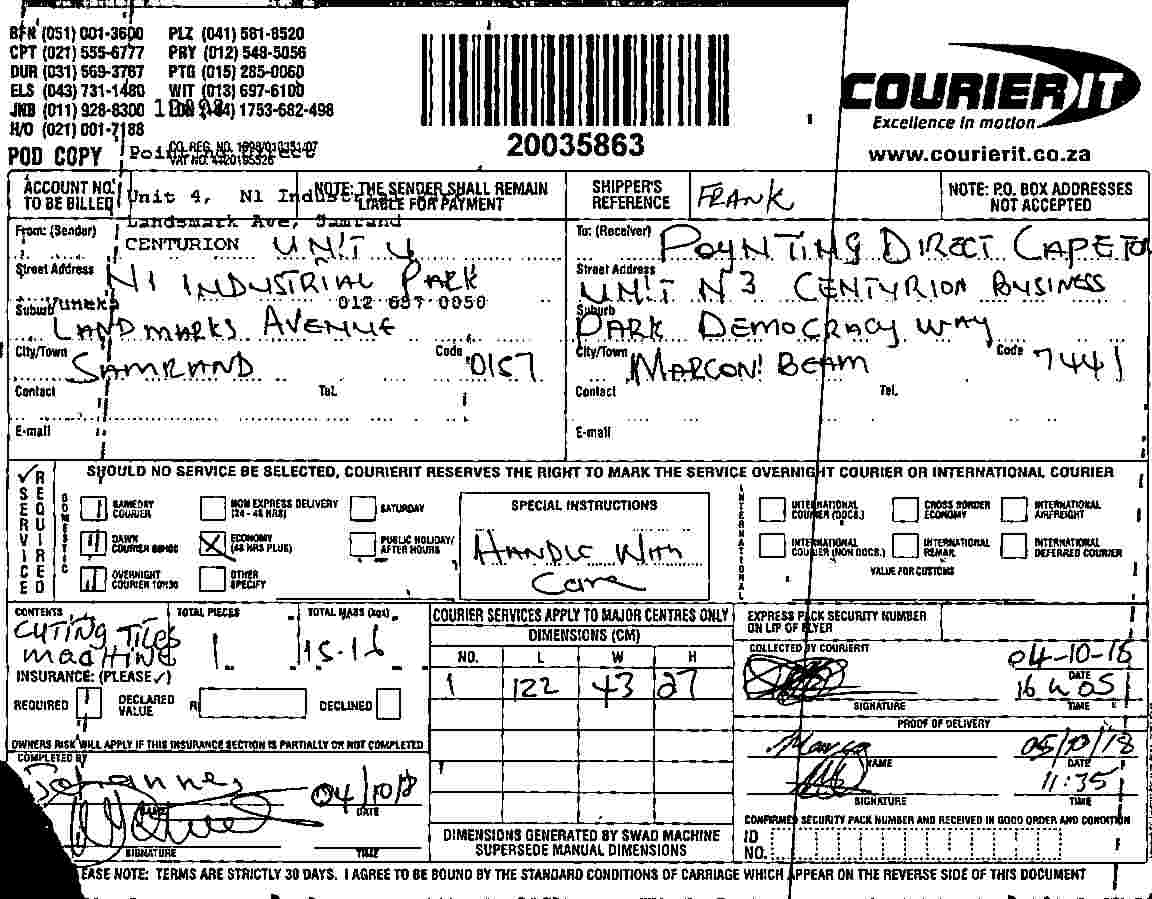 BFN (051) 001-3600 PLZ (041) 581-8520
CPT (021) 555-6777 PRY (012) 548-5056
DUR (031) 569-3767 PTG (015) 285-0060
ELS (043) 731-1480 WIT (013) 697-6100
JNB (011) 928-8300 1753-682-498
H/O (021) 001-7188
POD COPY
20035863
COURIERIT
Excellence in motion
www.courierit.co.za
ACCOUNT NO. TO BE BILLED
Unit 4, N1
NOTE: THE SENDER SHALL REMAIN LIABLE FOR PAYMENT
SHIPPER'S REFERENCE FRANK
NOTE: P.O. BOX ADDRESSES NOT ACCEPTED
Landsmark Ave, Samrand
CENTURION
From: (Sender) UNIT 4
Street Address N1 INDUSTRIAL PARK
012 657 0050
Suburb LANDMARKS AVENUE
City/Town SAMRAND Code 0157
Contact Tel.
E-mail
To: (Receiver) POYNTING DIRECT
Street Address UNIT N3 CENTYRION BUSINESS
Suburb PARK DEMOCRACY WAY
City/Town MARCONI BEAM Code 7441
Contact Tel.
E-mail
SERVICE REQUIRED
SHOULD NO SERVICE BE SELECTED, COURIERIT RESERVES THE RIGHT TO MARK THE SERVICE OVERNIGHT COURIER OR INTERNATIONAL COURIER
DOMESTIC
SAMEDAY COURIER
NON EXPRESS DELIVERY (24 - 48 HRS)
SATURDAY
DAWN COURIER
ECONOMY (48 HRS PLUS)
PUBLIC HOLIDAY/ AFTER HOURS
OVERNIGHT COURIER 10H30
OTHER SPECIFY
SPECIAL INSTRUCTIONS
HANDLE With
Care
INTERNATIONAL
INTERNATIONAL COURIER (DOCS.)
CROSS BORDER ECONOMY
INTERNATIONAL AIRFREIGHT
INTERNATIONAL COURIER (NON DOCS.)
INTERNATIONAL REMAIL
INTERNATIONAL DEFERRED COURIER
VALUE FOR CUSTOMS
CONTENTS TOTAL PIECES TOTAL MASS (kgs)
CUTING TILES 1 15-16
MACHINE
INSURANCE: (PLEASE ✓)
REQUIRED DECLARED VALUE R DECLINED
OWNERS RISK WILL APPLY IF THIS INSURANCE SECTION IS PARTIALLY OR NOT COMPLETED
COMPLETED BY
Johannes
04/10/8
DATE
SIGNATURE TIME
COURIER SERVICES APPLY TO MAJOR CENTRES ONLY
DIMENSIONS (CM)
NO. L W H
1 122 43 27
DIMENSIONS GENERATED BY SWAD MACHINE
SUPERSEDE MANUAL DIMENSIONS
EXPRESS PACK SECURITY NUMBER
ON LIP OF FLYER
COLLECTED BY COURIERIT
04-10-18
DATE
16h05
SIGNATURE TIME
PROOF OF DELIVERY
05/10/18
NAME DATE
11:35
SIGNATURE TIME
CONFIRMED SECURITY PACK NUMBER AND RECEIVED IN GOOD ORDER AND CONDITION
ID NO.
EASE NOTE: TERMS ARE STRICTLY 30 DAYS. I AGREE TO BE BOUND BY THE STANDARD CONDITIONS OF CARRIAGE WHICH APPEAR ON THE REVERSE SIDE OF THIS DOCUMENT